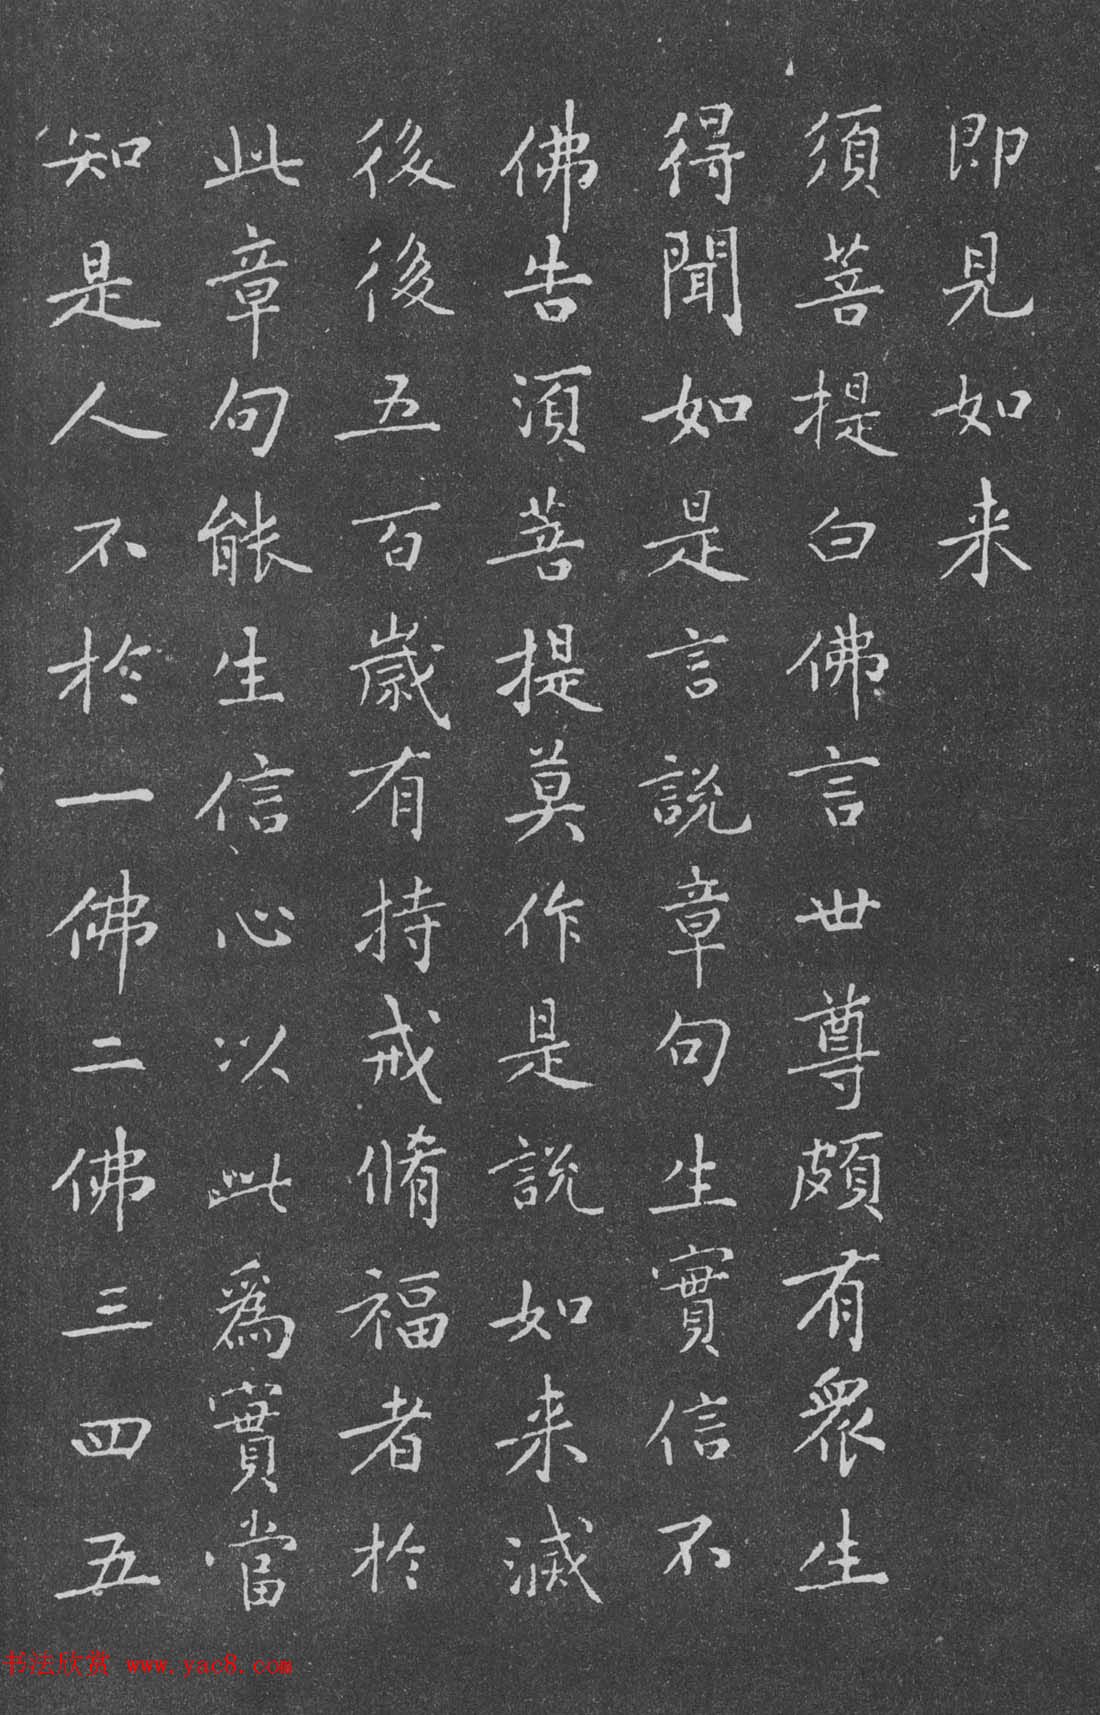 即見如来
須菩提白佛言世尊頗有眾生
得聞如是言說章句生實信不
佛告須菩提莫作是說如来滅
後後五百歲有持戒脩福者於
此章句能生信心以此爲實當
知是人不於一佛二佛三四五
书法欣赏 www.yac8.com